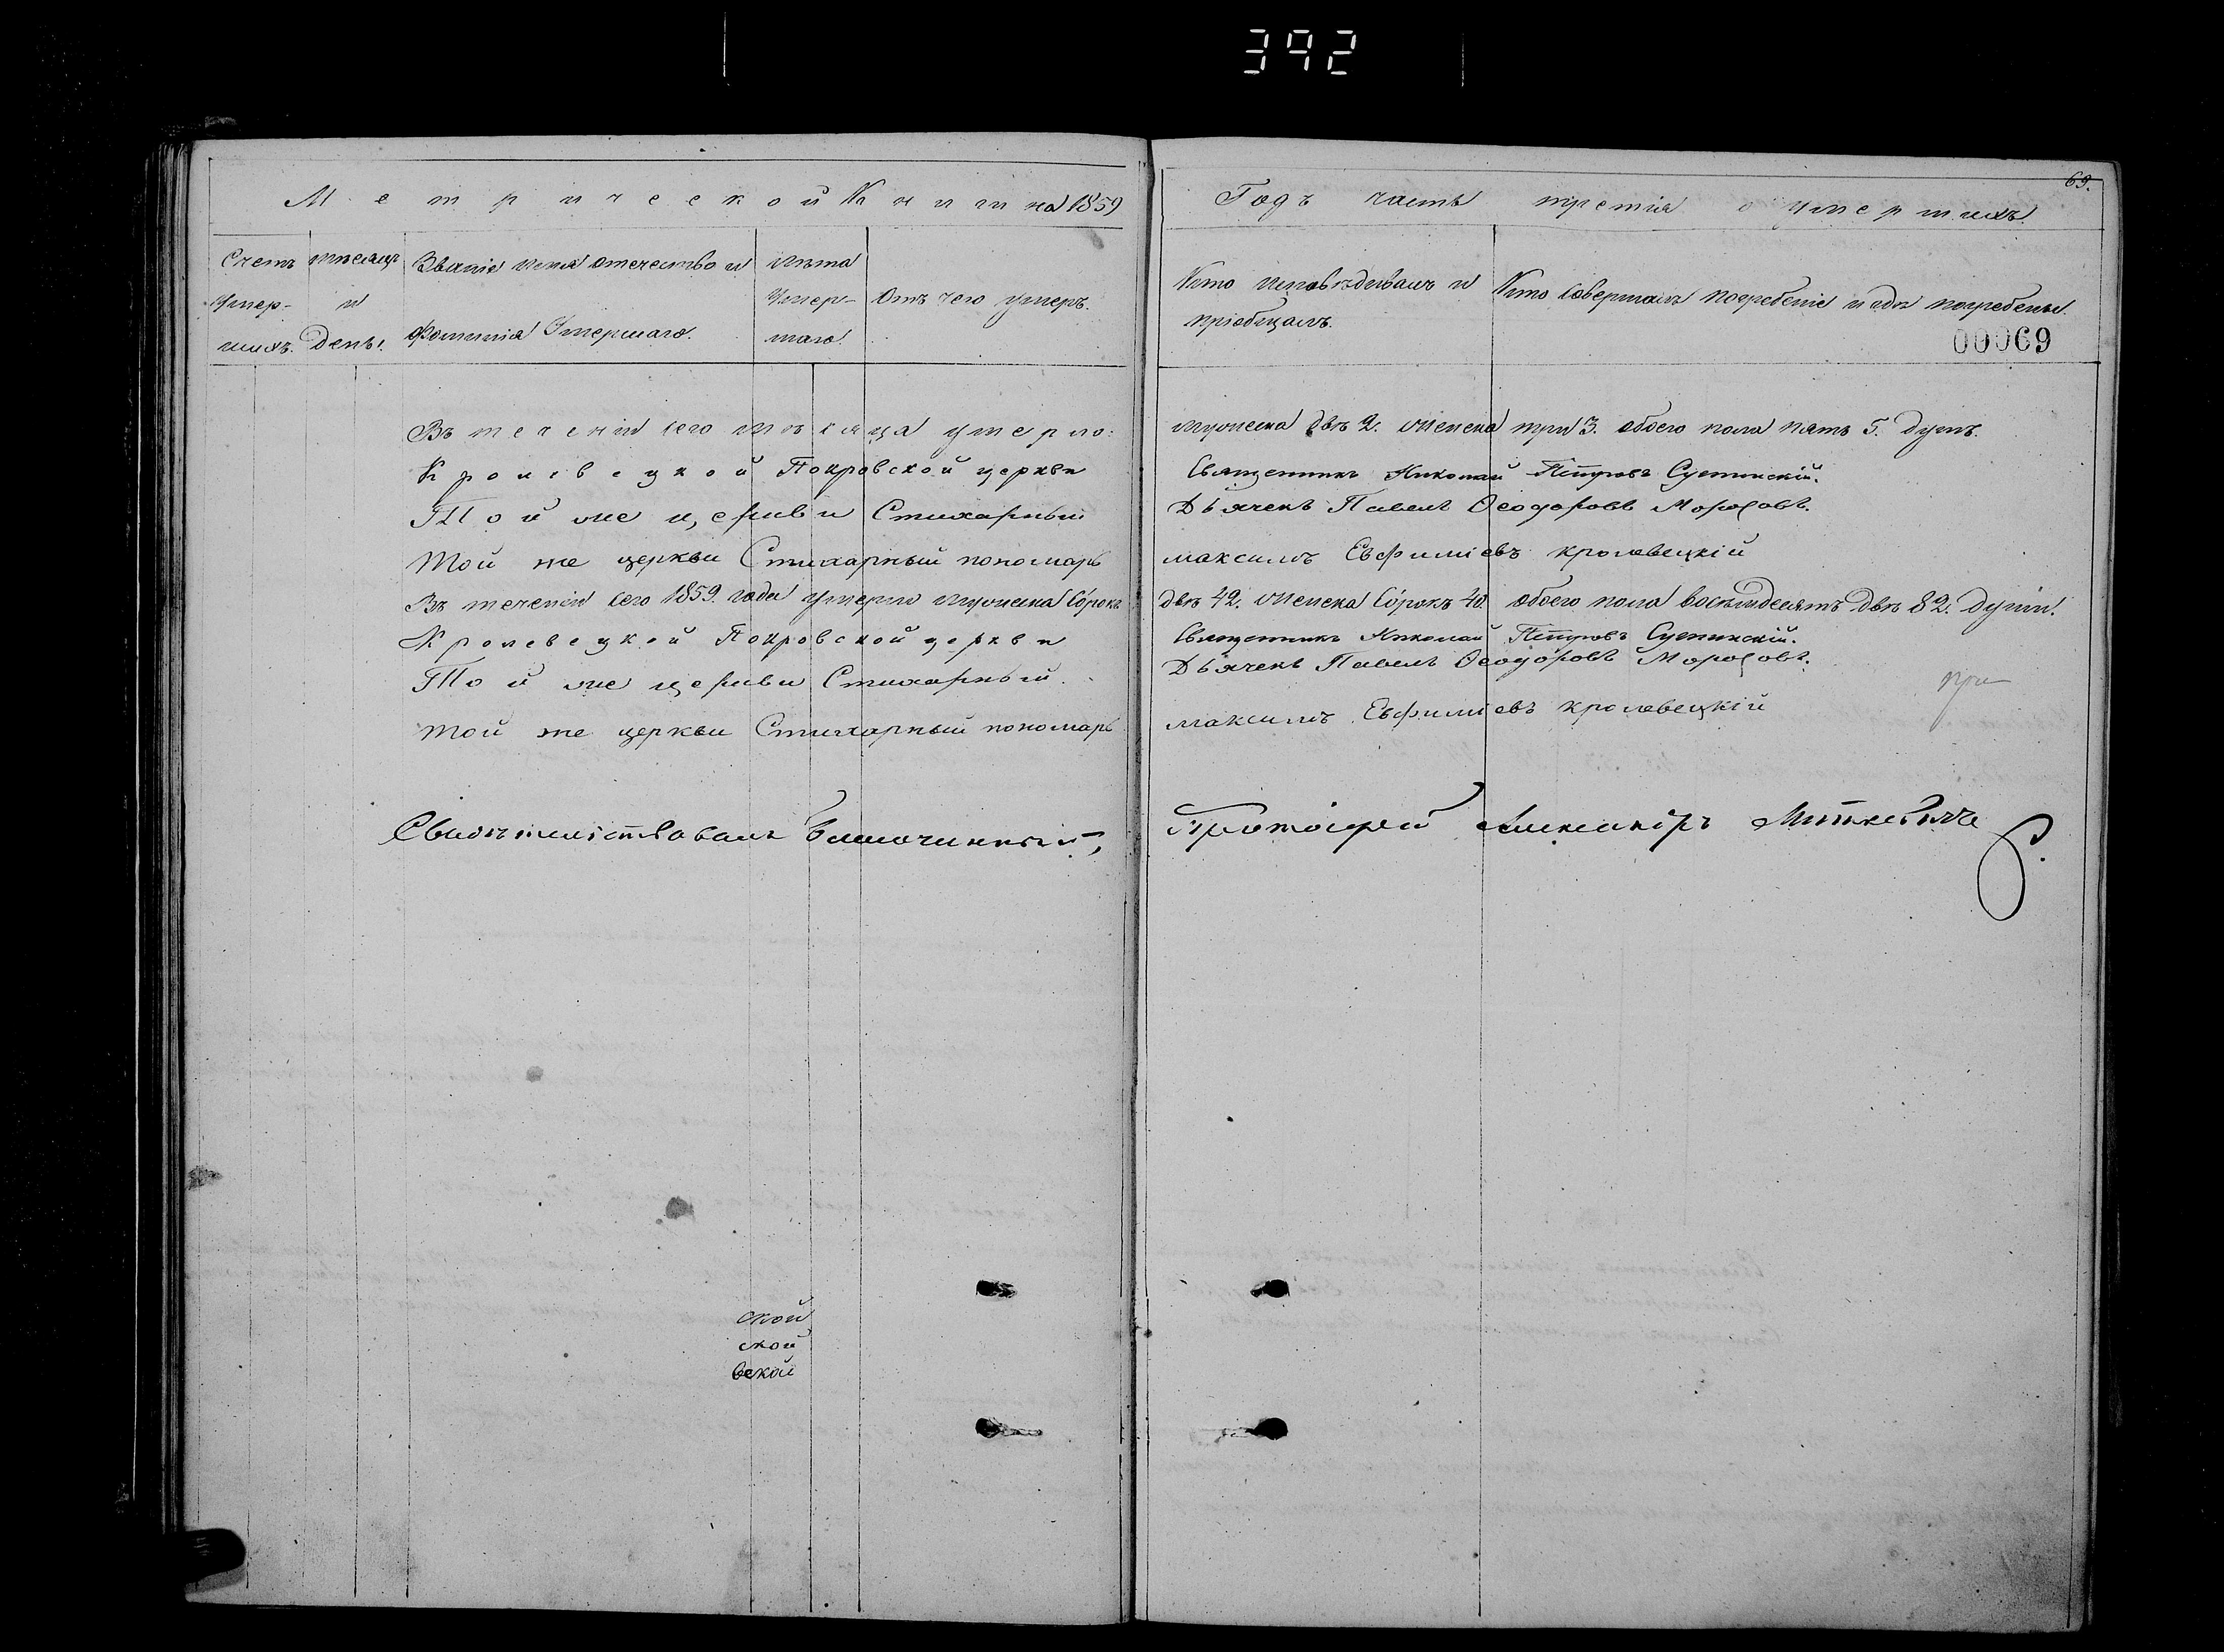 392
Метрической Книги на 1859
Годъ часть третія о умершихъ.
69.
Счетъ умер- шихъ.
мѣсяцъ и День.
Званіе имя отечество и фамилія Умершаго.
лѣта Умер- шаго.
Отъ чего умеръ.
Кто исповѣдывалъ и пріобщалъ.
Кто совершалъ погребеніе и гдѣ погребены.
00069
Въ теченіи сего мѣсяца умерло: мужеска двѣ 2. женска три 3. обоего пола пять 5. душъ.
Кролевецкой Покровской церкви Священникъ Николай Петровъ
Той же церкви Стихарный Дьячекъ Павелъ Ѳеодоровъ Морозовъ.
Той же церкви Стихарный пономарь максимъ Евфиміевъ кролевецкій
Въ теченіи сего 1859. года умерло мужеска сорокъ двѣ 42. женска сорокъ 40. обоего пола восемдесятъ двѣ 82. души.
Кролевецкой Покровской церкви Священникъ Николай Петровъ
Той же церкви Стихарный Дьячекъ Павелъ Ѳеодоровъ Морозовъ.
при
Той же церкви Стихарный пономарь максимъ Евфиміевъ кролевецкій
Свидѣтельствовалъ Благочинный, Протоіерей Александръ Миткевичъ
ской
ской
вской